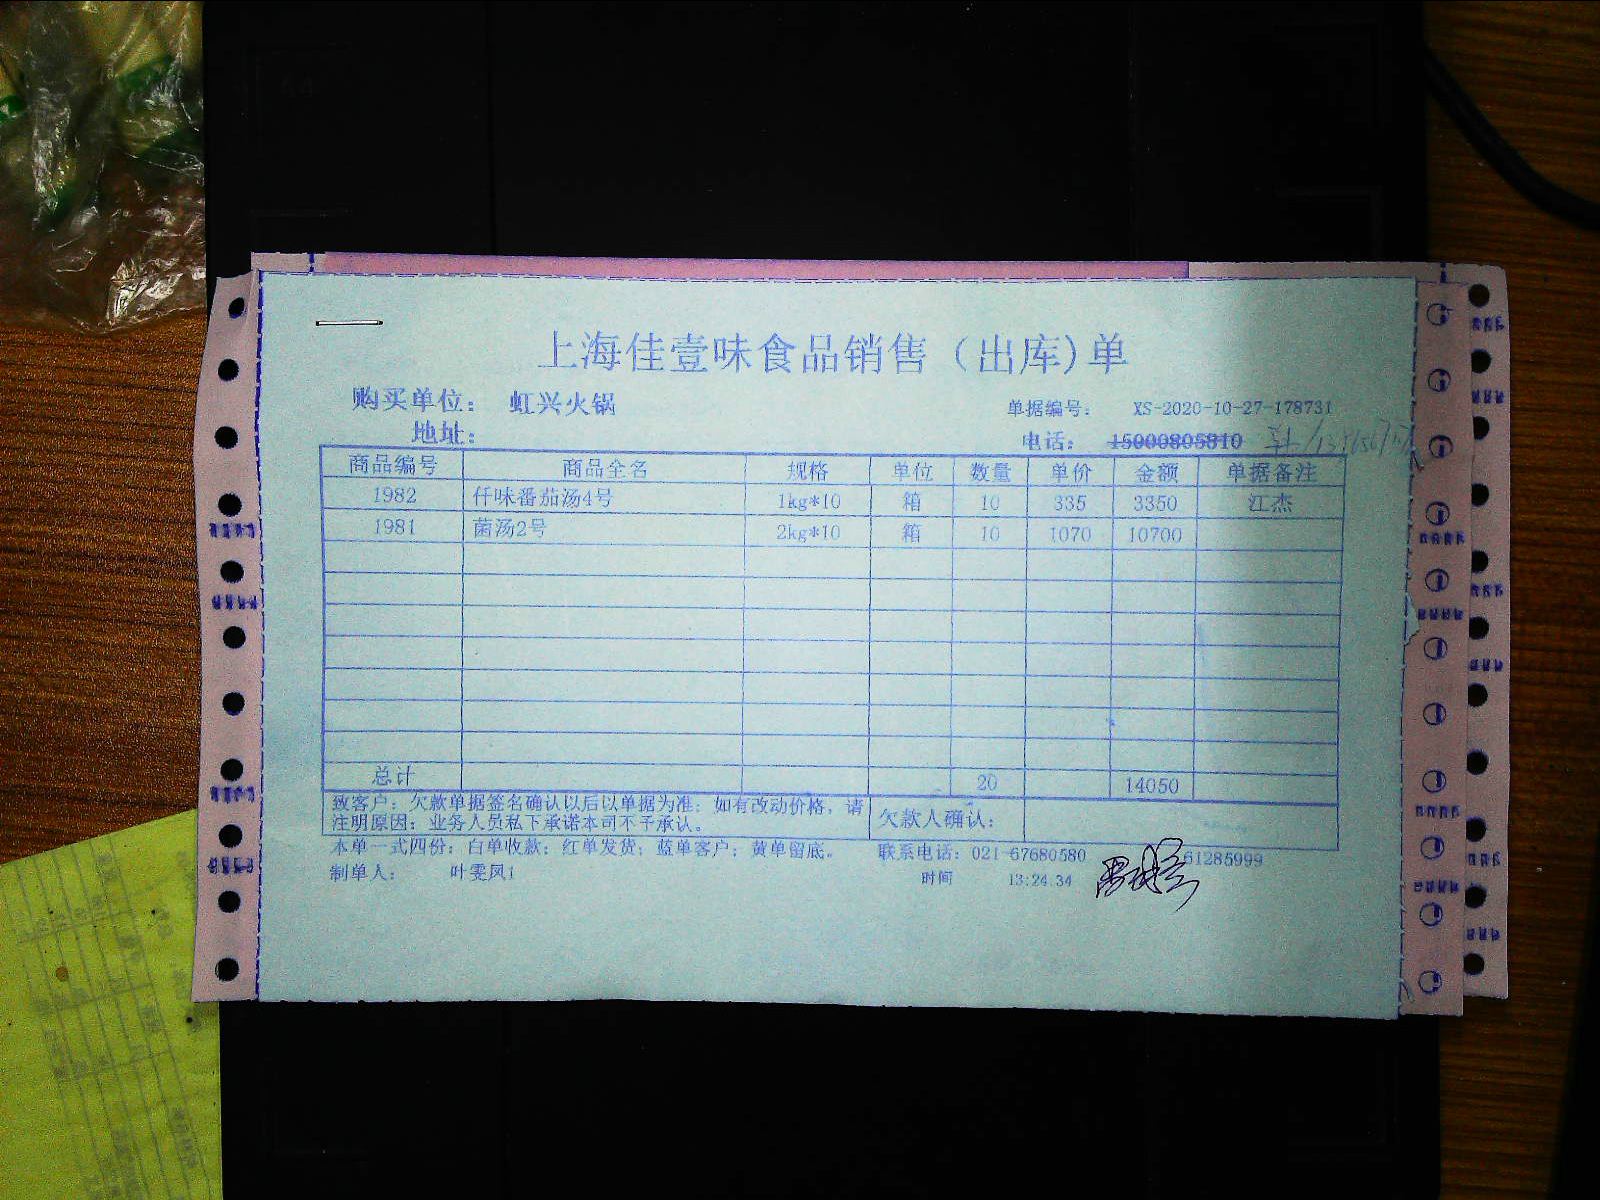 上海佳壹味食品销售（出库)单
购买单位： 虹兴火锅 单据编号： XS-2020-10-27-178731
地址： 电话： 15000805810
商品编号 商品全名 规格 单位 数量 单价 金额 单据备注
1982 仟味番茄汤4号 1kg*10 箱 10 335 3350 江杰
1981 菌汤2号 2kg*10 箱 10 1070 10700
总计 20 14050
致客户：欠款单据签名确认以后以单据为准；如有改动价格，请
注明原因；业务人员私下承诺本司不予承认。 欠款人确认：
本单一式四份；白单收款；红单发货；蓝单客户；黄单留底。 联系电话：021-67680580 61285999
制单人： 叶雯凤1 时间 13:24.34